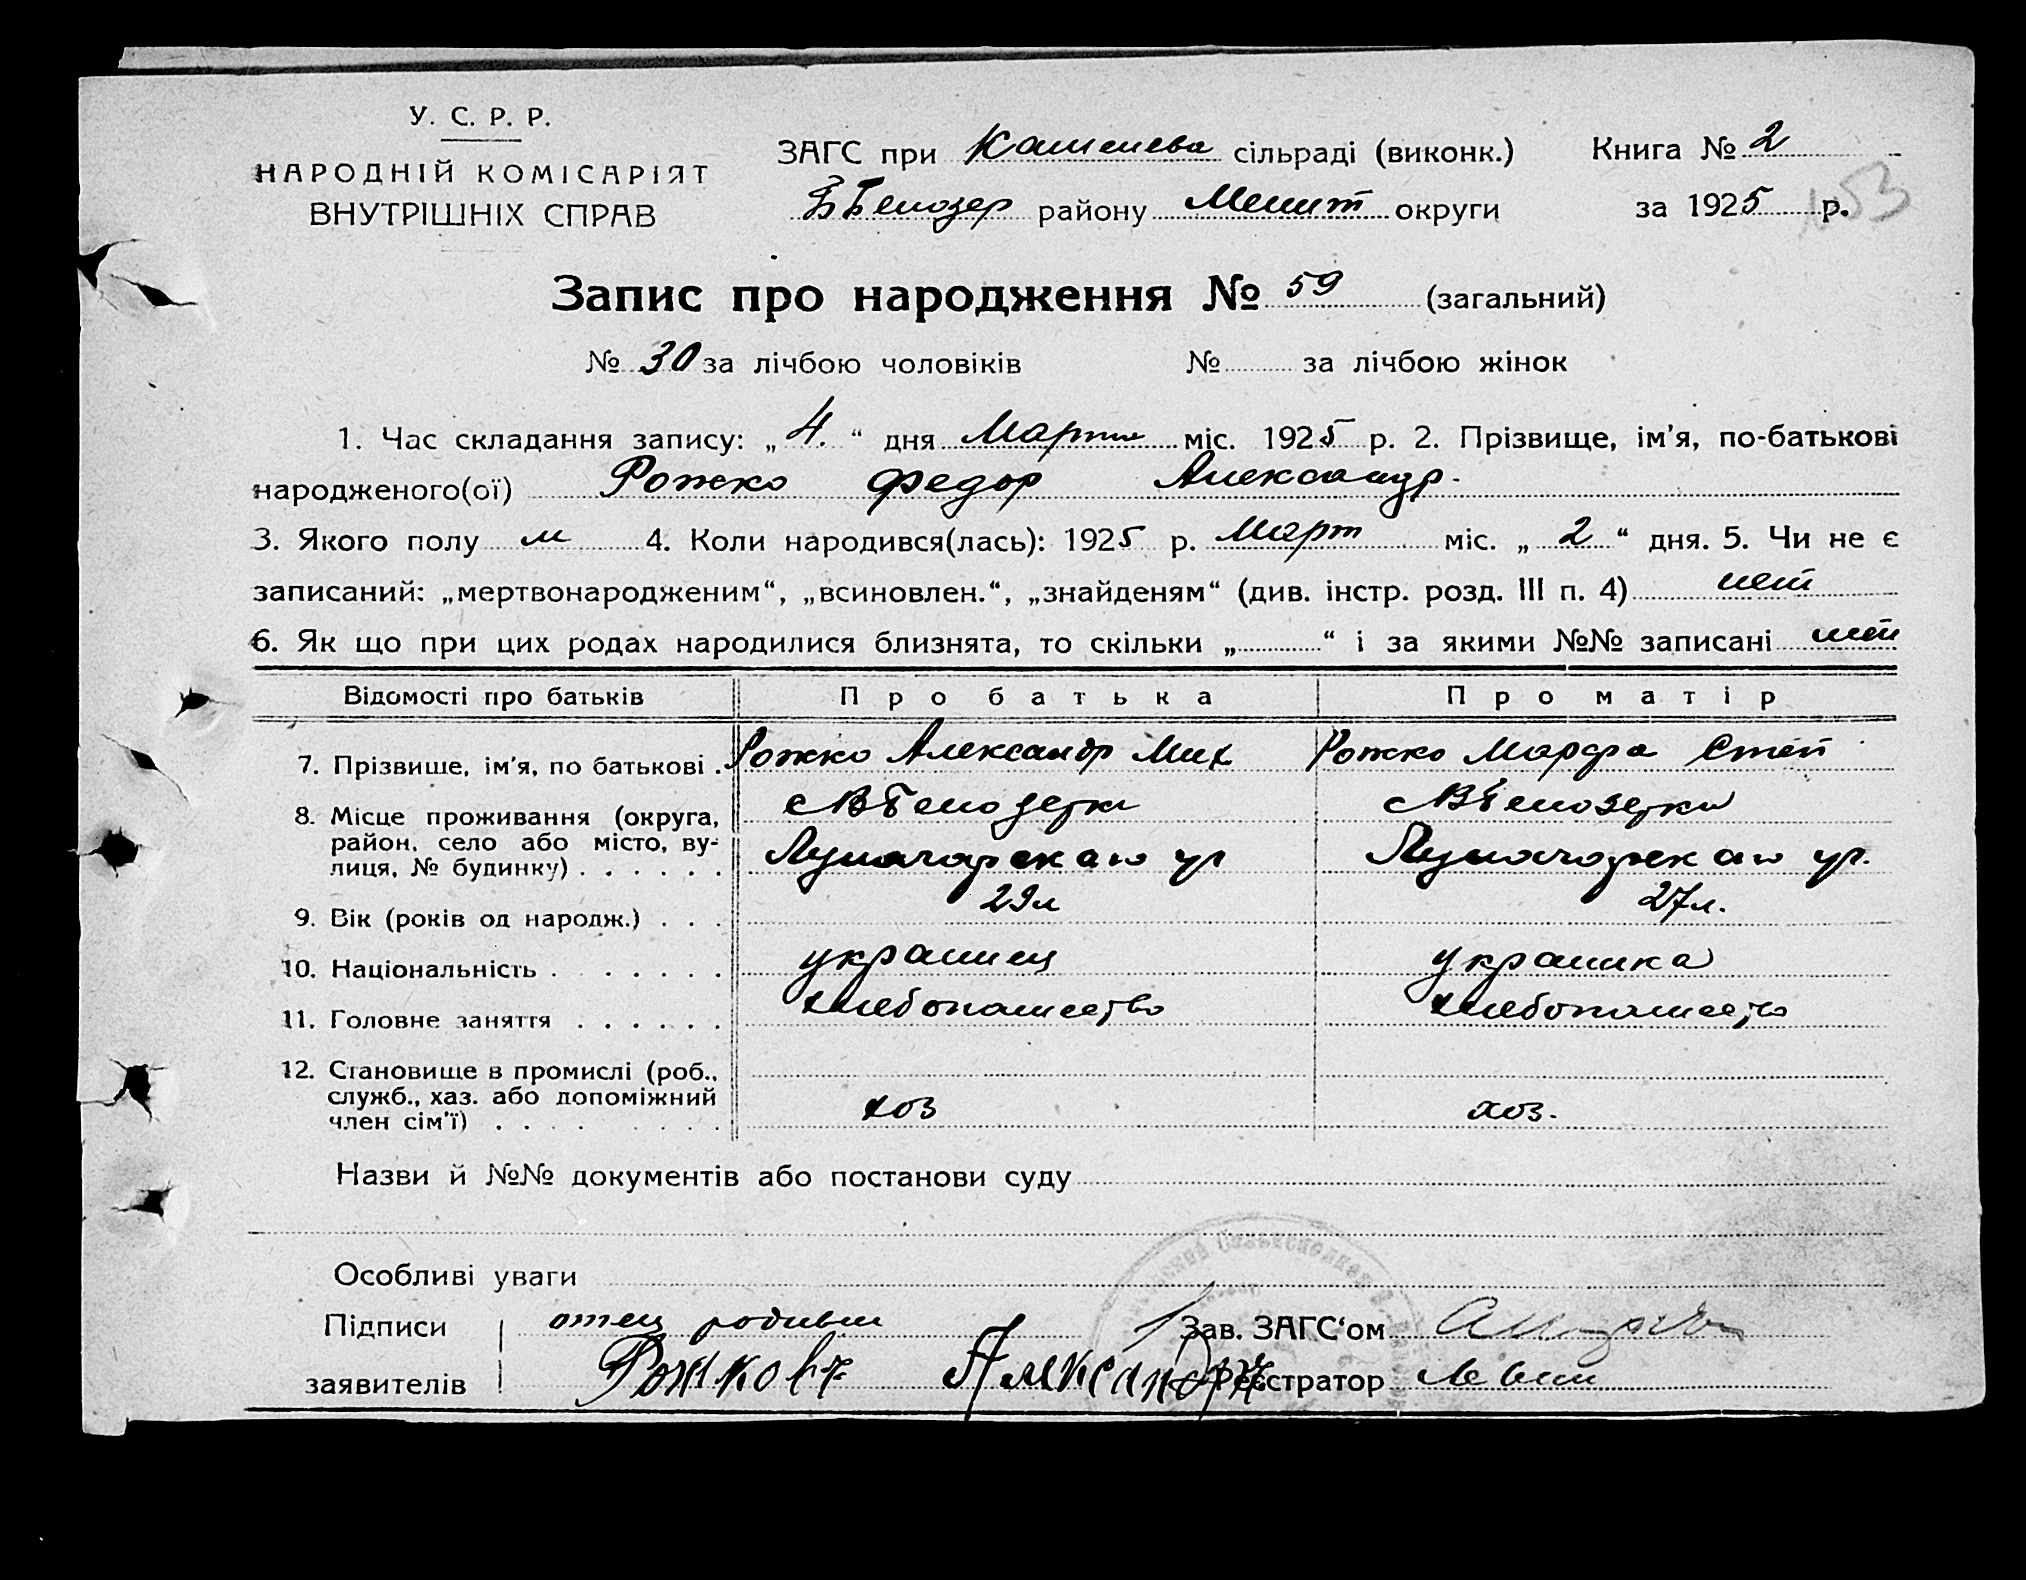 У. С. Р. Р.
НАРОДНІЙ КОМІСАРІЯТ
ВНУТРІШНІХ СПРАВ
ЗАГС при сільраді (виконк.) Книга № 2
району Мелит округи за 1925 р. 53
Запис про народження № 59 (загальний)
№ 30 за лічбою чоловіків № за лічбою жінок
1. Час складання запису: „ 4. “ дня Марта міс. 1925 р. 2. Прізвище, ім'я, по-батькові
народженого(ої) Рожко Федор Александр.
3. Якого полу м 4. Коли народився(лась): 1925 р. Март міс. „ 2 “ дня. 5. Чи не є
записаний: „мертвонародженим“, „всиновлен.“, „знайденям“ (див. інстр. розд. III п. 4) нет
6. Як що при цих родах народилися близнята, то скільки „ “ і за якими №№ записані нет
Відомості про батьків Про батька Про матір
7. Прізвище, ім'я, по батькові . Рожко Александр Мих Рожко Марфа Степ
8. Місце проживання (округа, с ВБелозерка с ВБелозерка
район, село або місто, ву-
лиця, № будинку) . . . . . . Луначарскаю ул Луначарскаю ул.
9. Вік (років од народж.) . . . 29л 27л.
10. Національність . . . . . . украинец украинка
11. Головне заняття . . . . . . хлебопашество хлебопашество
12. Становище в промислі (роб.,
служб., хаз. або допоміжний
член сім'ї) . . . . . . . . хоз хоз.
Назви й №№ документів або постанови суду
Особливі уваги
Підписи отец родивш Зав. ЗАГС'ом
заявителів Рожковъ Александръ Реєстратор Левин